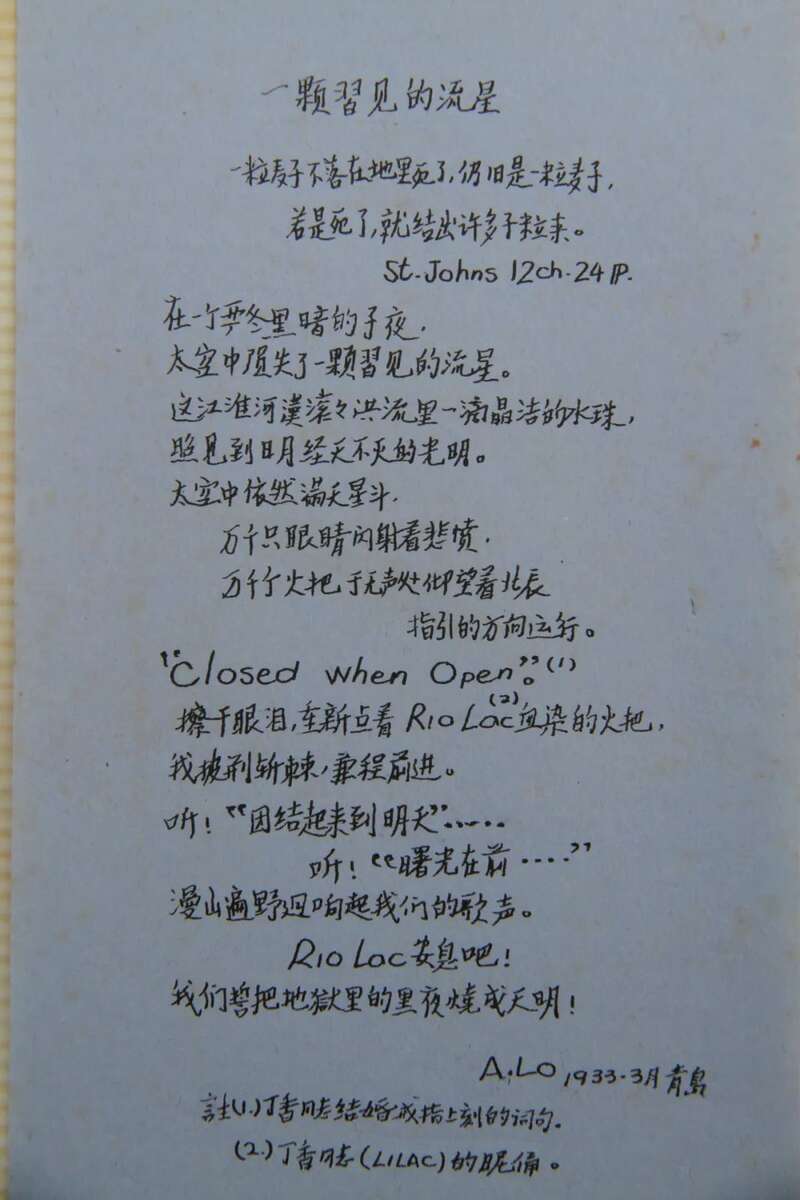 一颗習见的流星
一粒麦子不落在地里死了,仍旧是一粒麦子,
若是死了,就结出许多子粒来。
St.Johns 12ch.24 P.
在一个严冬黑暗的子夜.
太空中陨失了一颗習见的流星。
这江淮河漢滚々洪流里一滴晶洁的水珠,
照见到日月经天不灭的光明。
太空中依然满天星斗.
万千只眼睛闪射着悲愤.
万千个火把于无声处仰望着北辰
指引的方向运行。
"Closed when Open"。(1)
擦干眼泪,重新点着 Rio Lac(2)血染的火把,
我披荆斩棘,兼程前进。
听!"团结起来到明天"……
听!"曙光在前……"
漫山遍野迴响起我们的歌声。
Rio Lac安息吧!
我们誓把地獄里的黑夜燒成天明!
A.LO 1933.3月青島
註(1.)丁香同志结婚戒指上刻的词句.
(2.)丁香同志(LILAC)的昵偁。